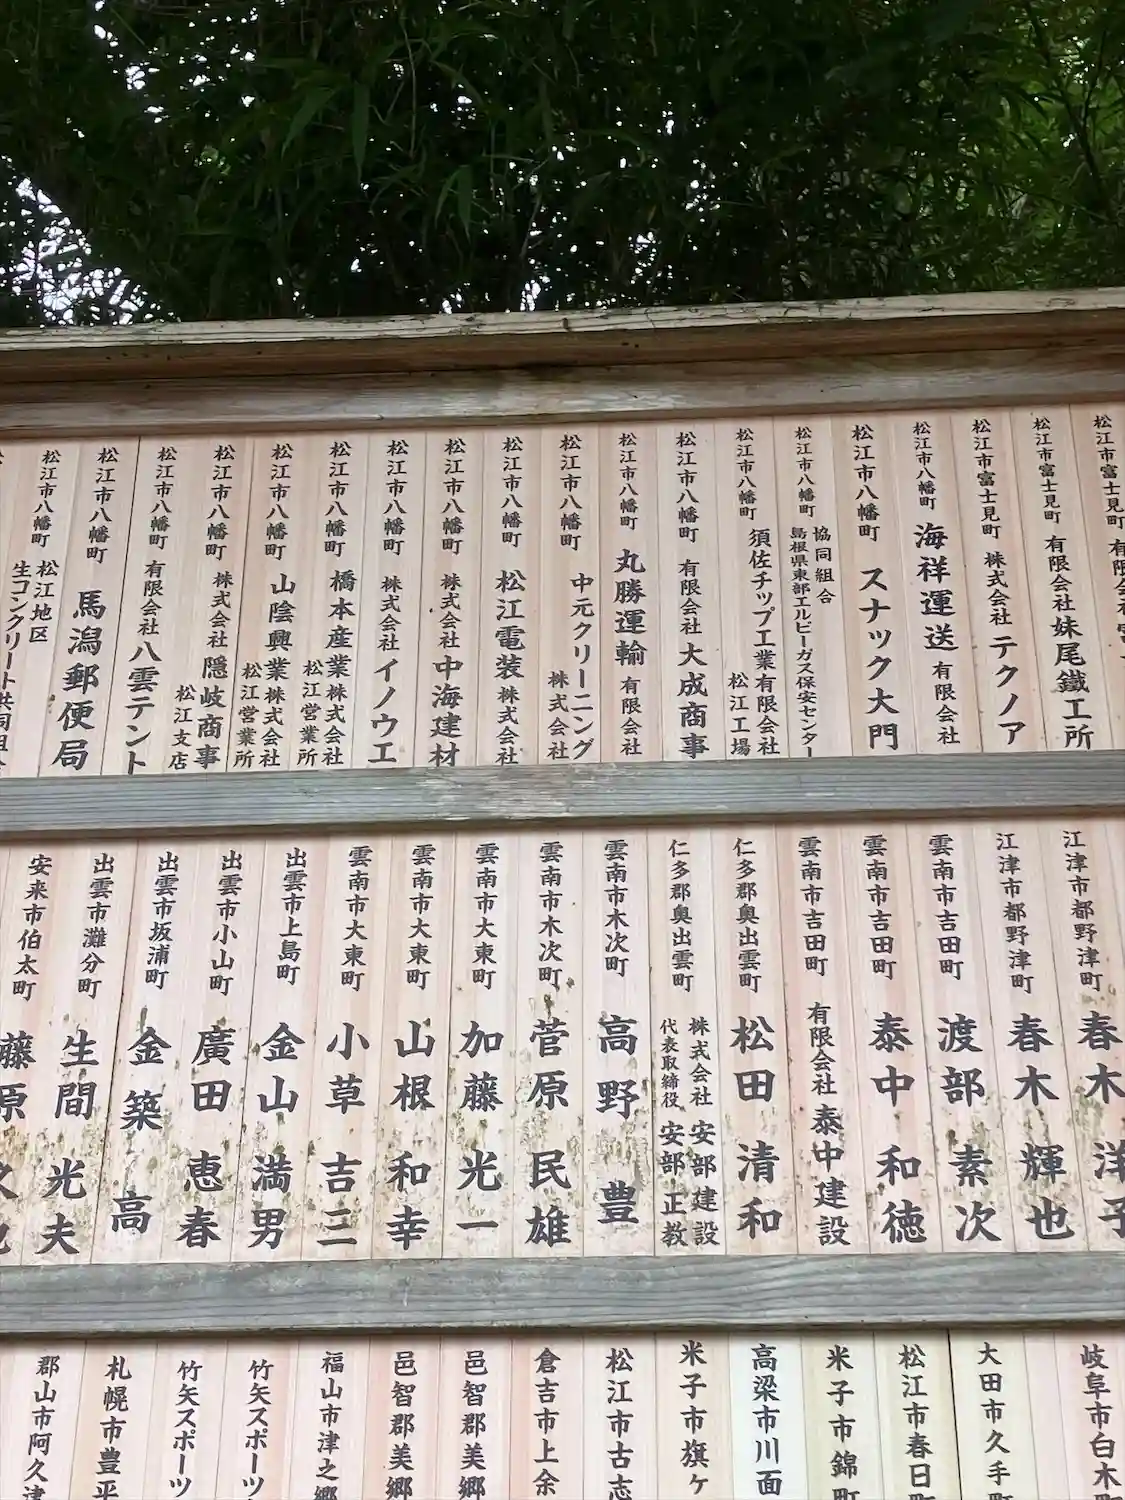 松江市富士見町
松江市富士見町 有限会社 妹尾鐵工所
松江市富士見町 株式会社 テクノア
松江市八幡町 海祥運送 有限会社
松江市八幡町 スナック大門
松江市八幡町 協同組合
島根県東部エルピーガス保安センター
松江市八幡町 須佐チップ工業有限会社
松江工場
松江市八幡町 有限会社 大成商事
松江市八幡町 丸勝運輸 有限会社
松江市八幡町 中元クリーニング
株式会社
松江市八幡町 松江電装 株式会社
松江市八幡町 株式会社 中海建材
松江市八幡町 株式会社 イノウエ
松江市八幡町 橋本産業 株式会社
松江営業所
松江市八幡町 山陰興業 株式会社
松江営業所
松江市八幡町 株式会社 隠岐商事
松江支店
松江市八幡町 有限会社 八雲テント
松江市八幡町 馬潟郵便局
松江市八幡町 松江地区
生コンクリート共同組合
江津市都野津町 春木 洋子
江津市都野津町 春木 輝也
雲南市吉田町 渡部 素次
雲南市吉田町 泰中 和徳
雲南市吉田町 有限会社 泰中建設
仁多郡奥出雲町 松田 清和
仁多郡奥出雲町 株式会社 安部建設
代表取締役 安部 正教
雲南市木次町 高野 豊
雲南市木次町 菅原 民雄
雲南市大東町 加藤 光一
雲南市大東町 山根 和幸
雲南市大東町 小草 吉二
出雲市上島町 金山 満男
出雲市小山町 廣田 恵春
出雲市坂浦町 金築 高
出雲市灘分町 生間 光夫
安来市伯太町 藤原
岐阜市白木町
大田市久手町
松江市春日町
米子市錦町
高梁市川面
米子市旗ヶ
松江市古志
倉吉市上余
邑智郡美郷
邑智郡美郷
福山市津之郷
竹矢スポーツ
竹矢スポーツ
札幌市豊平
郡山市阿久津